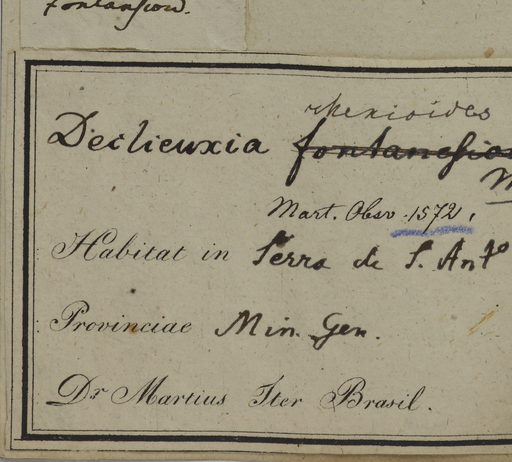 fontanesiou.
rhexioides
Declieuxia fontanesiou
M
Mart. Obsv. 1572.
Habitat in Serra de S. Antº
Provinciae Min. Gen.
Dr Martius Iter Brasil.